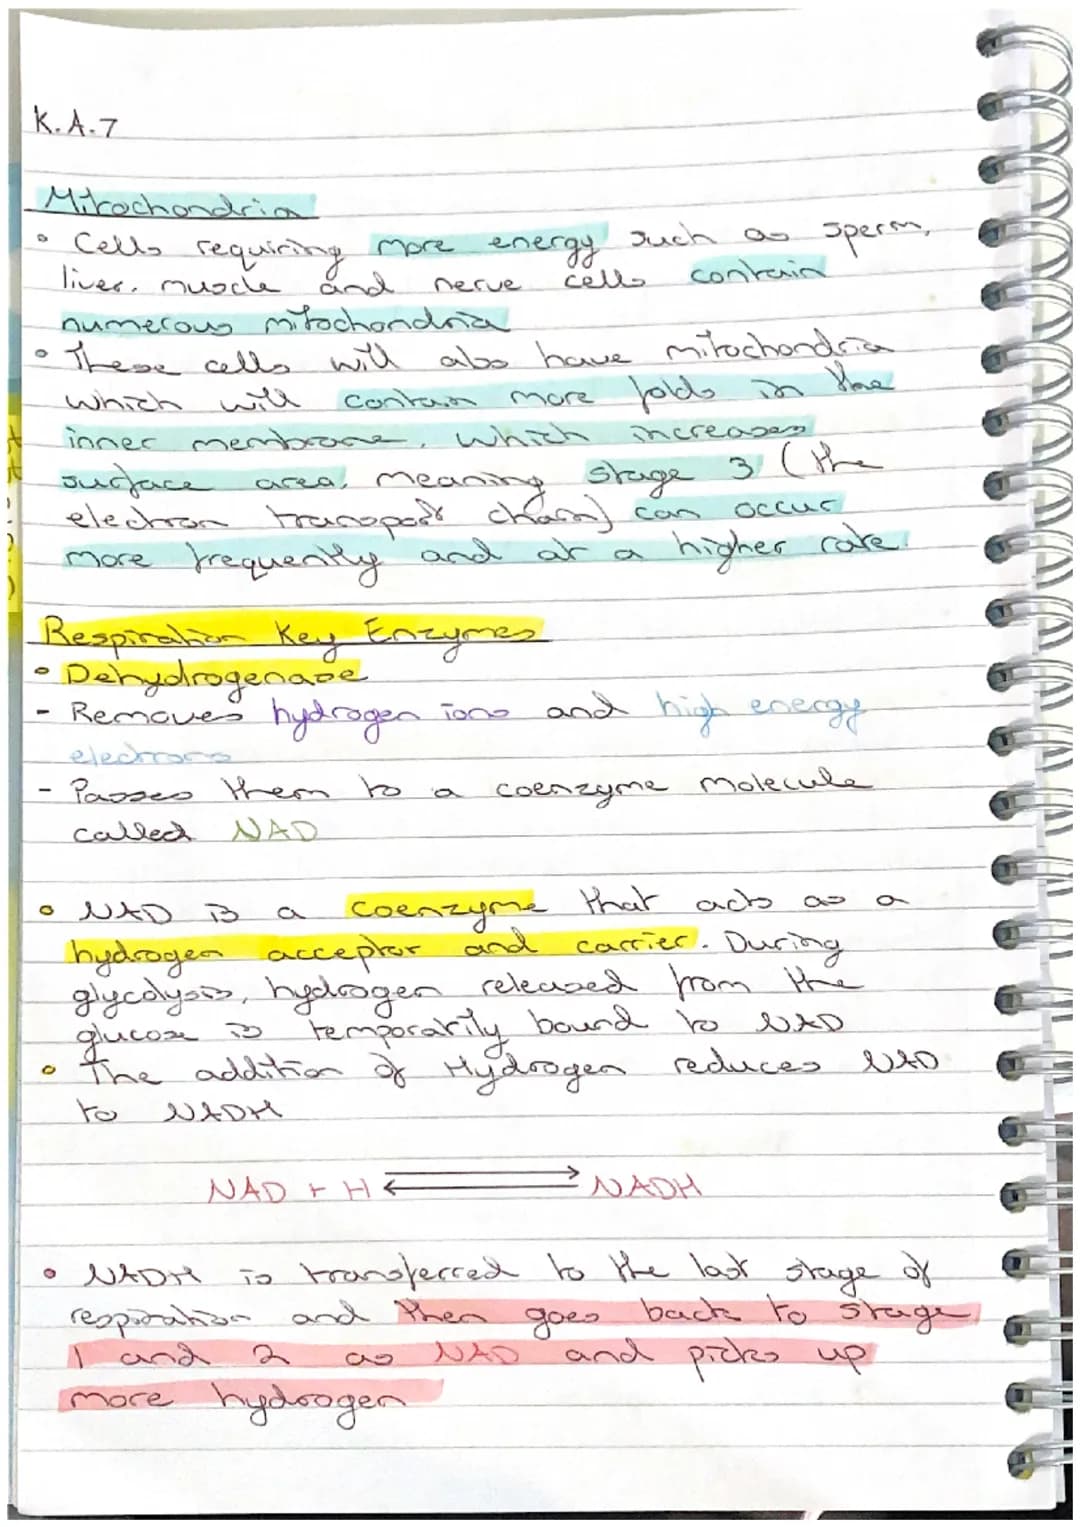 K.A.7
Mitochondria
• Cells requiring more energy such as sperm,
liver, muscle and nerve cells contain
numerous mitochondria
• These cells will also have mitochondria
which will contain more folds in the
inner membrane, which increases
surface area, meaning stage 3 (the
electron transport chain) can occur
more frequently and at a higher rate.
Respiration Key Enzymes
• Dehydrogenase
- Removes hydrogen ions and high energy
electrons
- Passes them to a coenzyme molecule
called NAD
• NAD is a coenzyme that acts as a
hydrogen acceptor and carrier. During
glycolysis, hydrogen released from the
glucose is temporarily bound to NAD
• The addition of Hydrogen reduces NAD
to NADH
NAD + H ⇌ NADH
• NADH is transferred to the last stage of
respiration and then goes back to stage
1 and 2 as NAD and picks up
more hydrogen